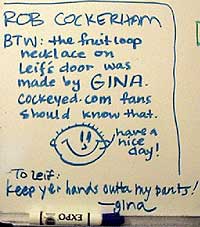 ROB COCKERHAM
BTW: the fruit loop
necklace on
Leif's door was
made by GINA.
cockeyed.com fans
should know that.
have a
nice
day!
To Leif:
keep yer hands outta my pants!
-gina
EXPO